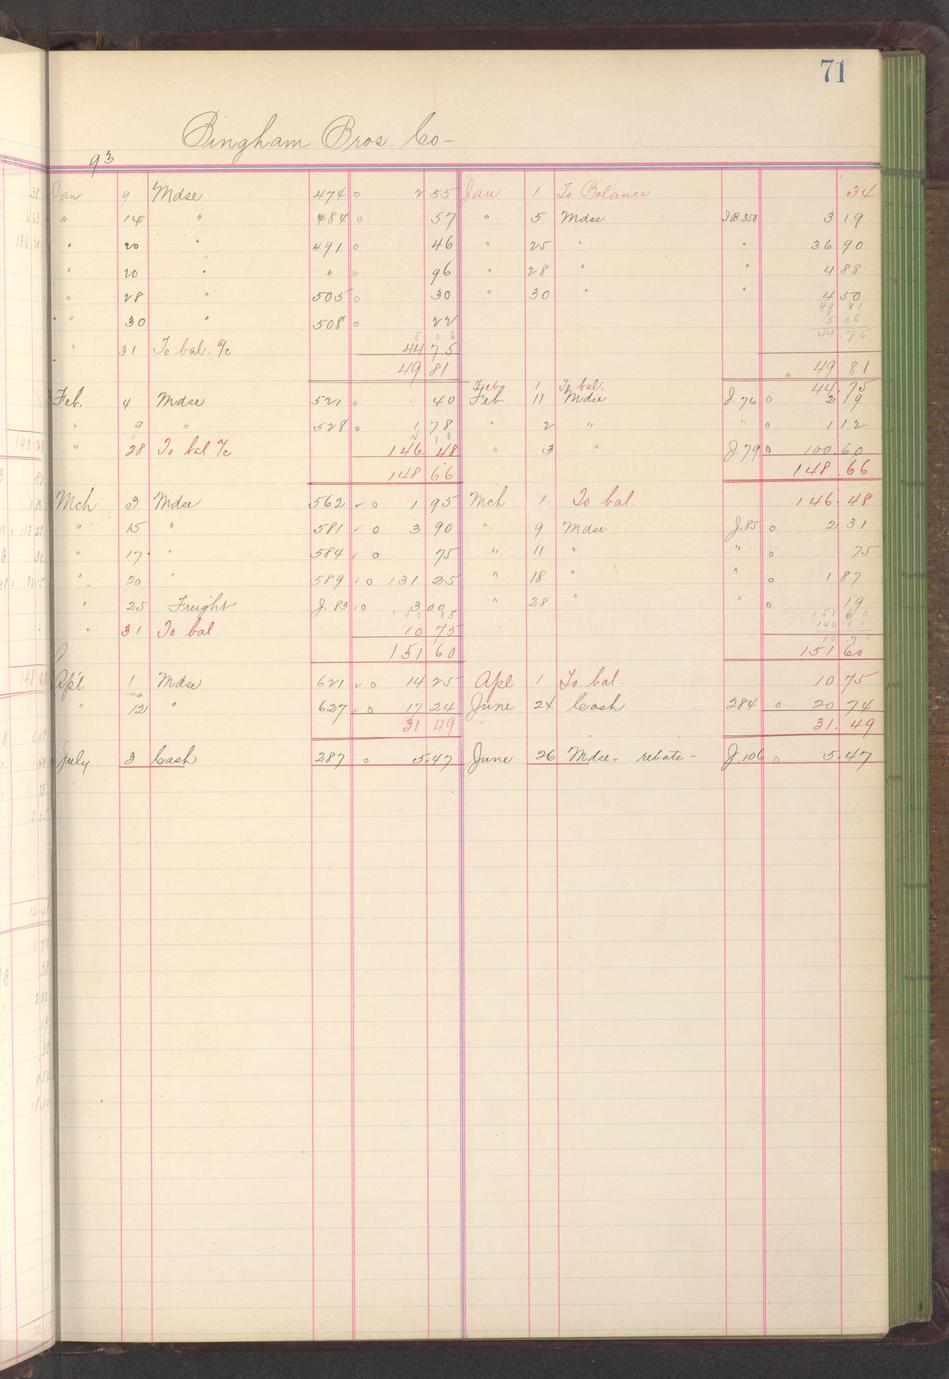 71
Bingham Bros. Co-
93
Jan 9 Mdse 474 o 2 55 Jan 1 To Balance 34
" 14 " 484 o 57 " 5 Mdse JB 350 3 19
" 20 " 491 o 46 " 25 " " 36 90
" 20 " " o 96 " 28 " " 4 88
" 28 " 505 o 30 " 30 " " 4 50
49 81
" 30 " 508 o 22 5 06
5 06 44.75
" 31 To bal. % 44 75
49 81 49 81
Feb 1 To bal. 44.75
Feb. 4 Mdse 521 o 40 Feb 11 Mdse J. 76 o 2 19
" 9 " 528 o 1 78 " 2 " " o 1 12
2 18
" 28 To bal % 146 48 " 3 " J. 79 o 100 60
148 66 148.66
Mch 3 Mdse 562 o 1 95 Mch 1 To bal. 146.48
" 15 " 581 o 3 90 " 9 Mdse J.85 o 2 31
" 17 " 584 o 75 " 11 " " o 75
" 20 " 589 o 131 25 " 18 " " o 1 87
" 25 Freight J. 83 o 3 00 " 28 " " o 19
140 85 151 60
140 85
" 31 To bal 10 75 10 75
151 60 151 60
Apl 1 Mdse 621 o 14 25 Apl 1 To bal. 10 75
" 12 " 627 o 17 24 June 24 Cash 284 o 20 74
31 49 31.49
July 3 Cash 287 o 5.47 June 26 Mdse - rebate - J.106 o 5.47